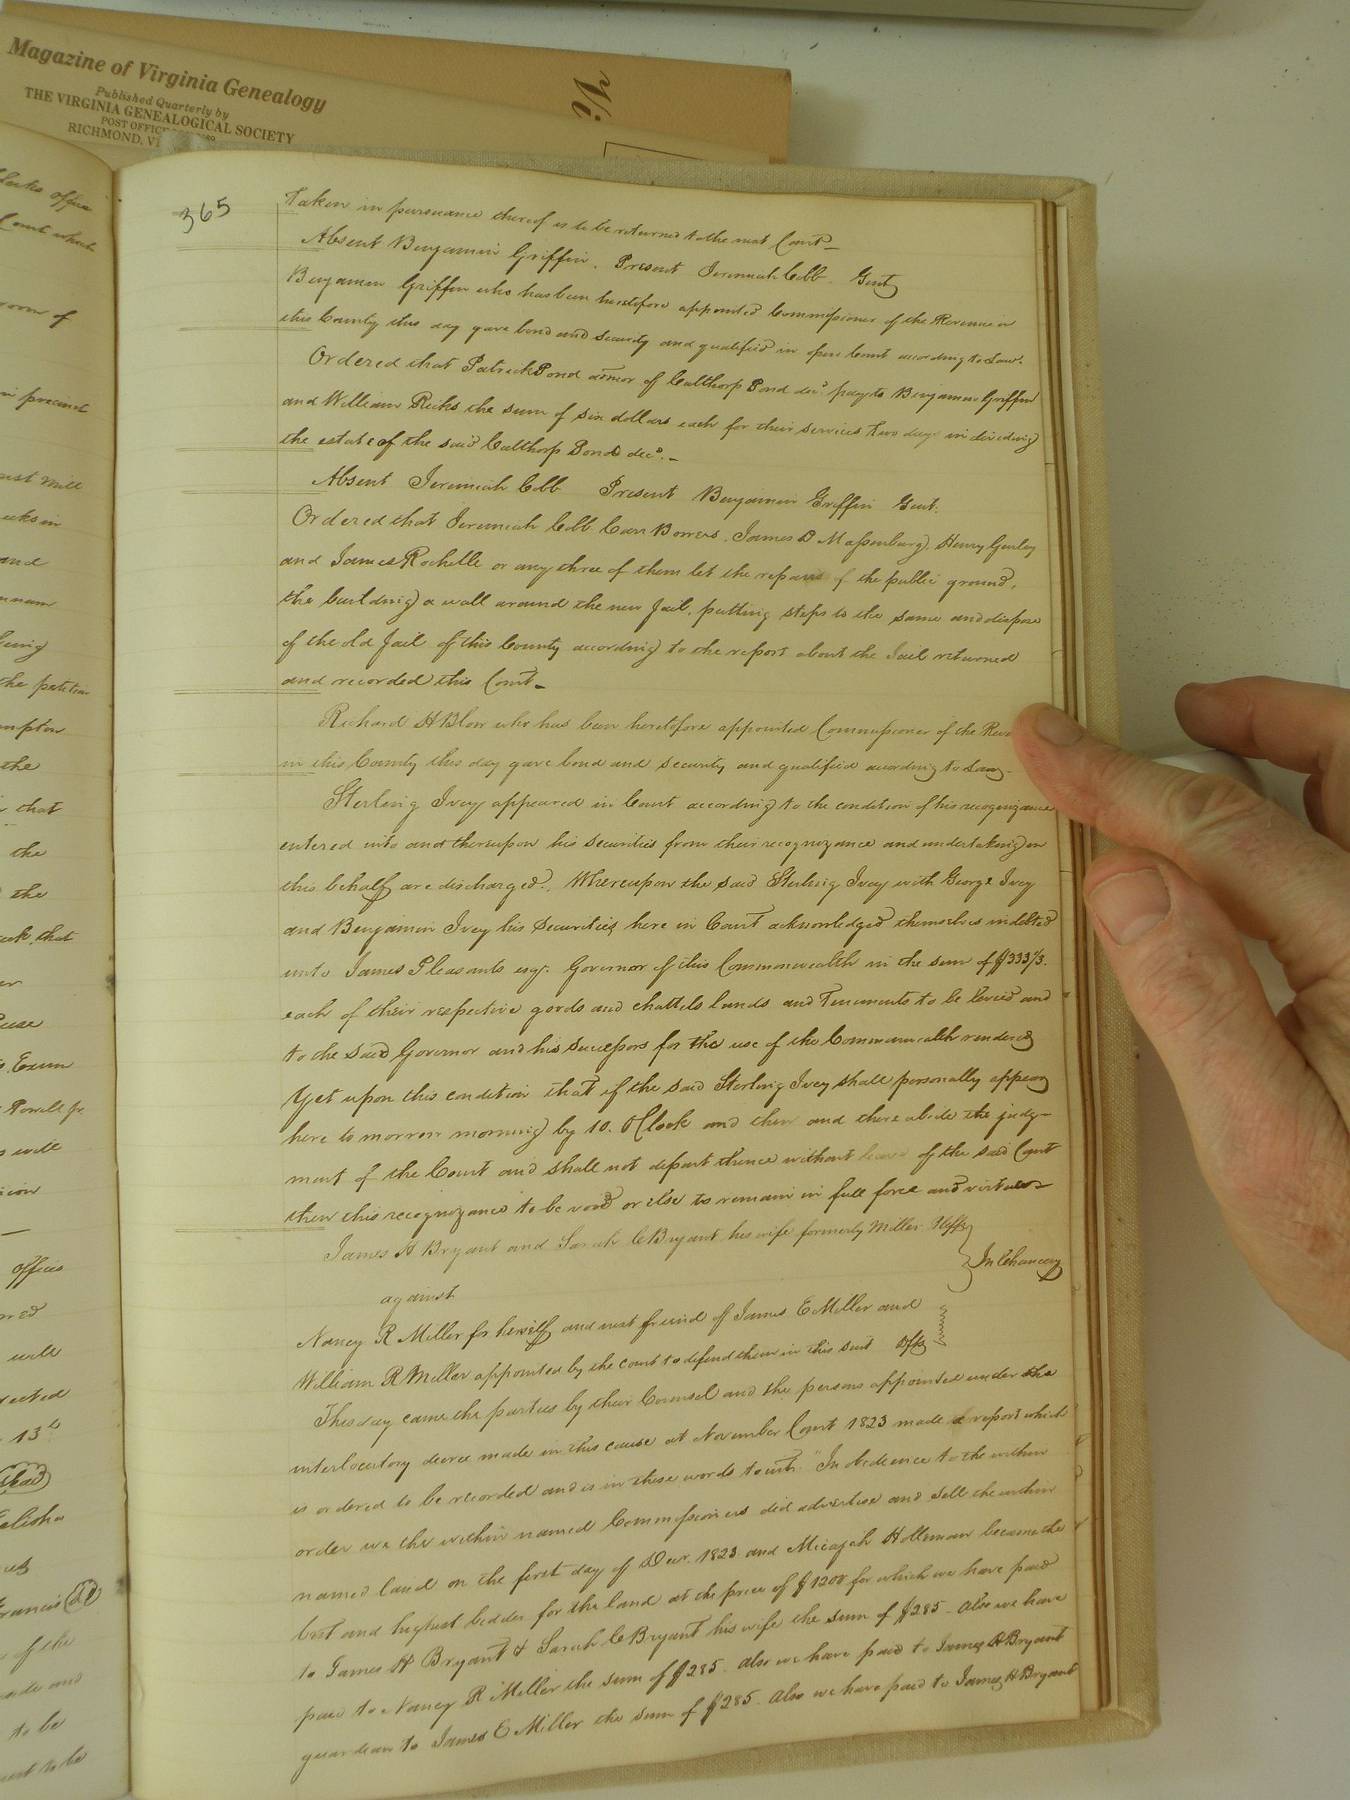 Magazine of Virginia Genealogy
Published Quarterly by
THE VIRGINIA GENEALOGICAL SOCIETY
POST OFFICE
RICHMOND, VI
Vi
365
Taken in pursuance thereof is to be returned to the next Court
Absent Benjamin Griffin. Present Jeremiah Cobb. Gent
Benjamin Griffin who has been heretofore appointed Commissioner of the Revenue in
this County this day gave bond and security and qualified in open Court according to Law.
Ordered that Patrick Pond admor of Calthorp Pond decd. pay to Benjamin Griffin
and William Ricks the sum of six dollars each for their services two days in dividing
the estate of the said Calthorp Pond decd. —
Absent Jeremiah Cobb Present Benjamin Griffin Gent.
Ordered that Jeremiah Cobb Carr Bowers, James D Massenburg, Henry Gurley
and James Rochelle or any three of them let the repairs of the public ground,
the building a wall around the new Jail, putting steps to the same and dispose
of the old Jail of this County according to the report about the Jail returned
and recorded this Court —
Richard H Blow who has been heretofore appointed Commissioner of the Rev
in this County this day gave bond and security and qualified according to Law.
Sterling Ivey appeared in Court according to the condition of his recognizance
entered into and thereupon his securities from their recognizance and undertaking in
this behalf are discharged. Whereupon the said Sterling Ivey with George Ivey
and Benjamin Ivey his Securities here in Court acknowledged themselves indebted
unto James Pleasants esqr. Governor of this Commonwealth in the sum of $333⅓.
each of their respective goods and chattels lands and Tenements to be levied and
to the said Governor and his successors for the use of the Commonwealth rendered
Yet upon this condition that if the said Sterling Ivey shall personally appear
here to morrow morning by 10. O'Clock and then and there abide the judg-
ment of the Court and shall not depart thence without leave of the said Court
then this recognizance to be void or else to remain in full force and virtue
James H Bryant and Sarah C Bryant his wife formerly Miller Plffs
In Chancery
against
Nancy R Miller for herself and next friend of James E Miller and
William R Miller appointed by the court to defend them in this suit Dfts
This day came the parties by their Counsel and the persons appointed under the
interlocutory decree made in this cause at November Court 1823 made a report which
is ordered to be recorded and is in these words towit: "In obedience to the within
order we the within named Commissioners did advertise and sell the within
named land on the first day of Decr. 1823 and Micajah Holleman became the
best and highest bidder for the land at the price of $1200 for which we have paid
to James H Bryant & Sarah C Bryant his wife the sum of $285. Also we have
paid to Nancy R Miller the sum of $285. Also we have paid to James H Bryant
guardian to James E Miller the sum of $285. Also we have paid to James H Bryant